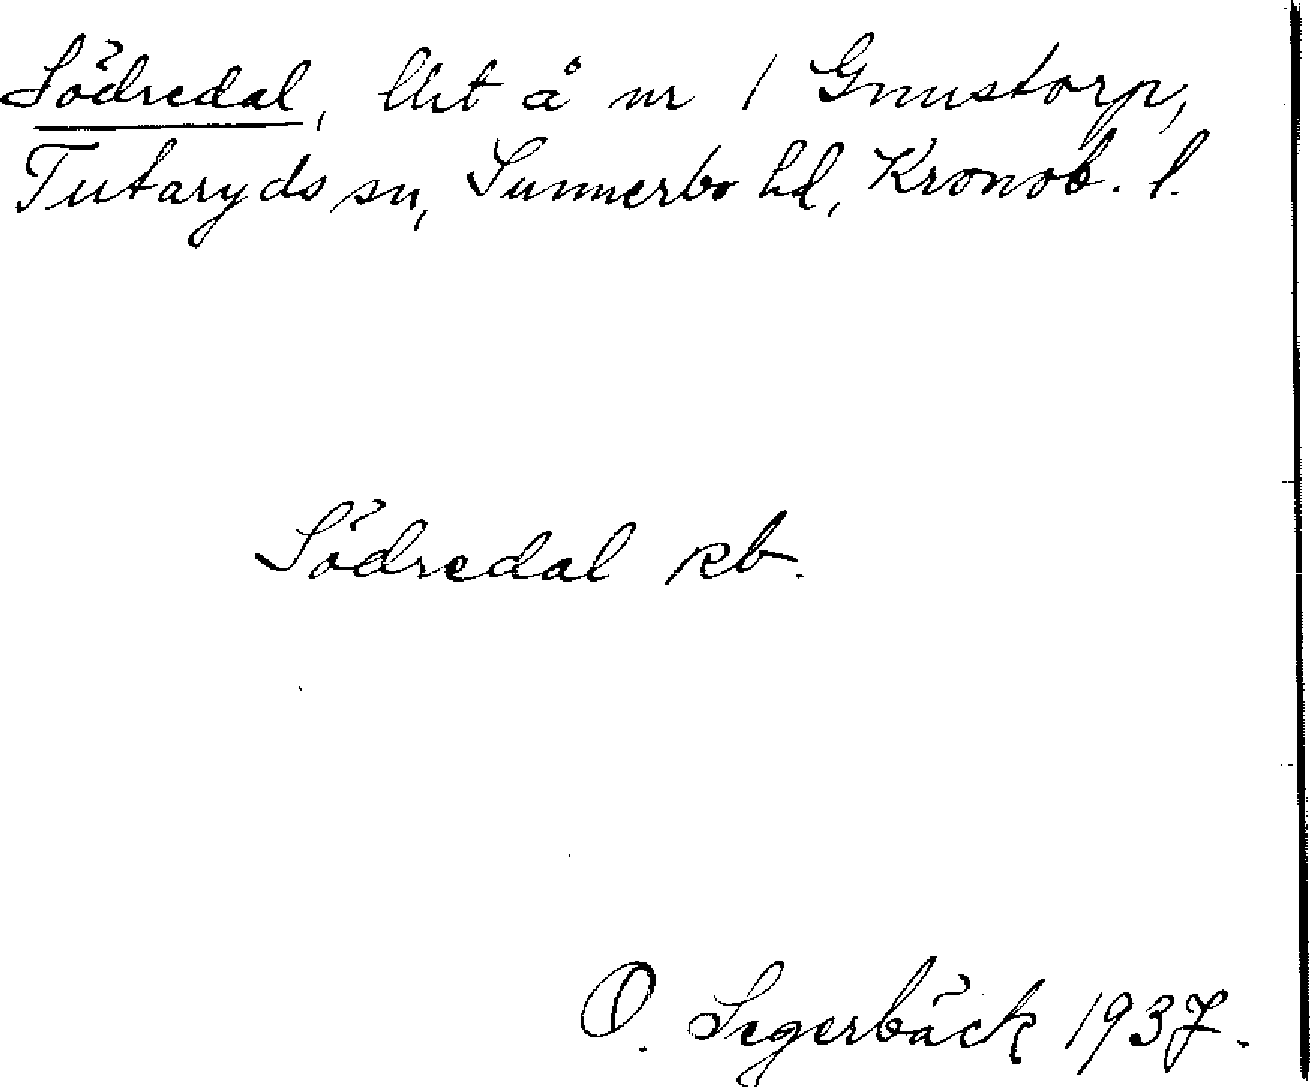 Södredal, lht å nr 1 Gnustorp,
Tutaryds sn, Sunnerbo hd, Kronob. l.
Södredal kb.
O. Segerbäck 1937.